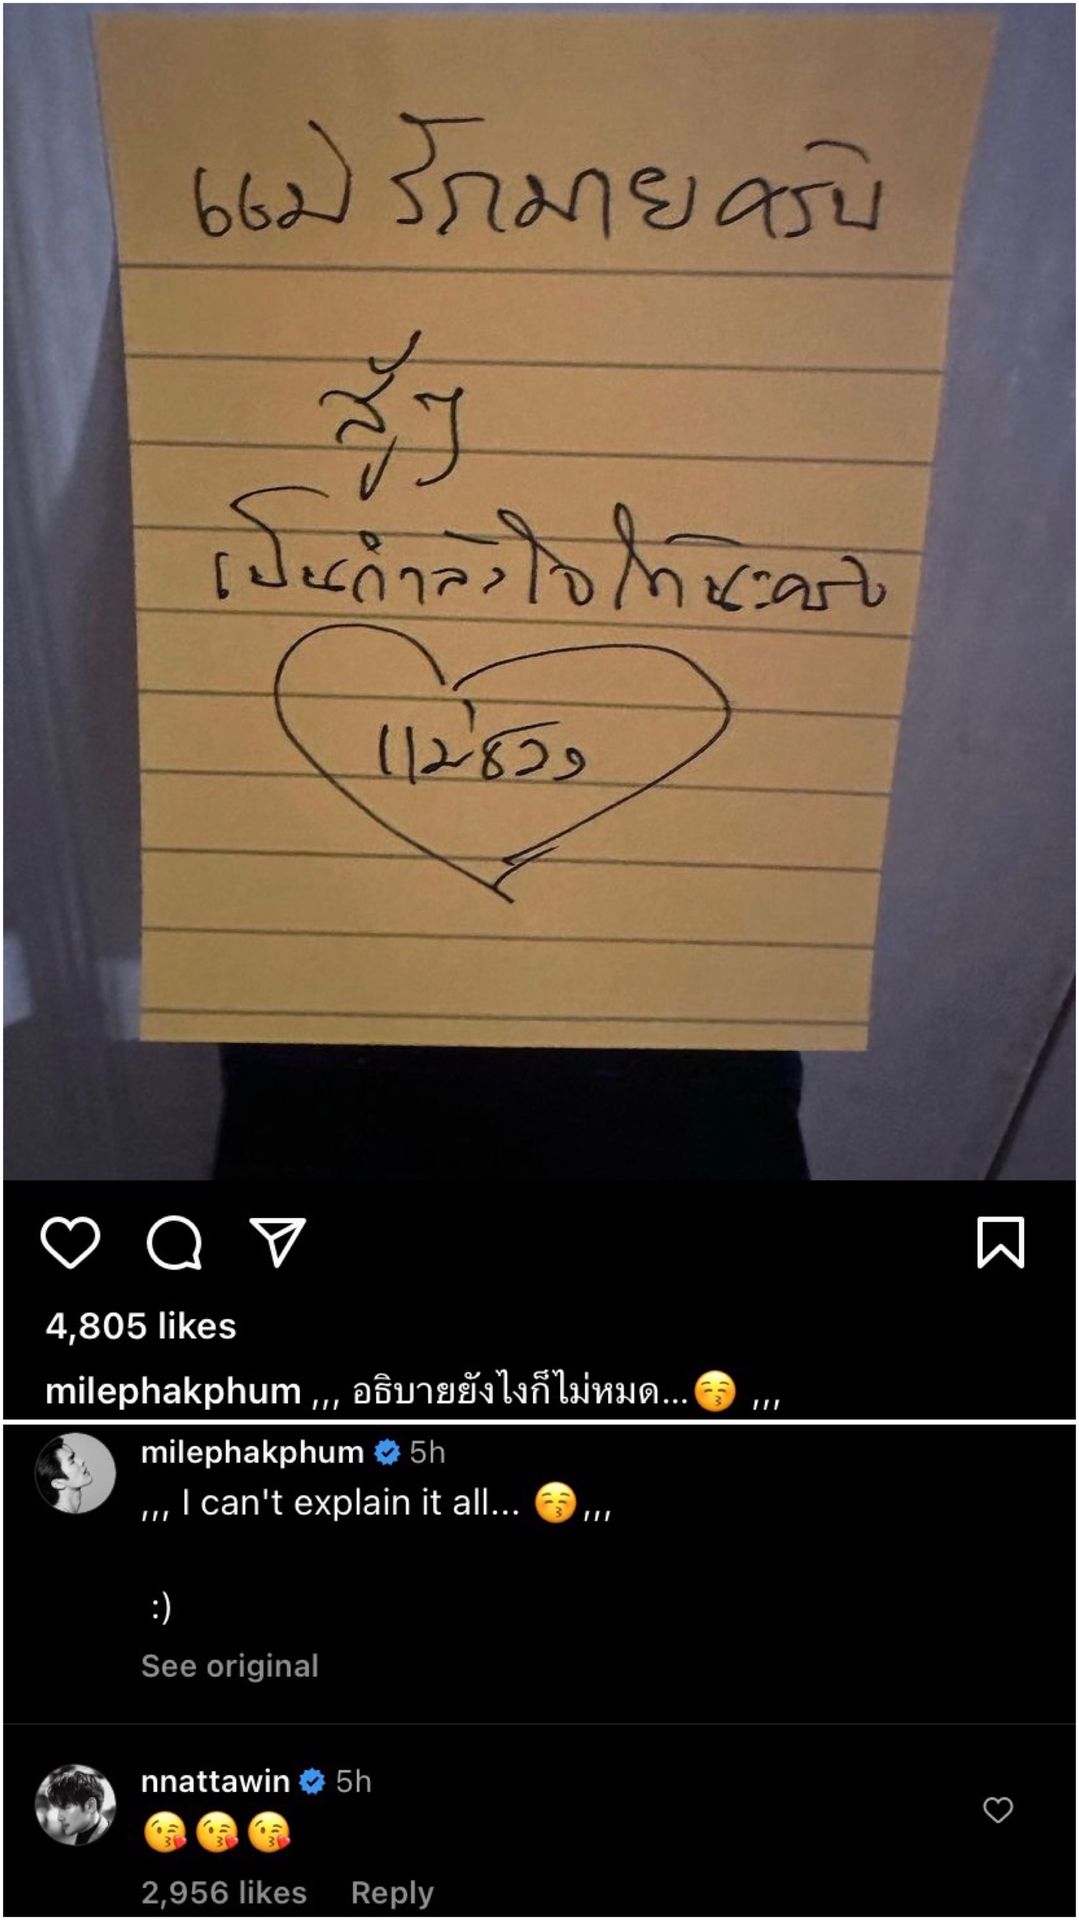 แม่ รักมายครับ
สู้ๆ
เป็นกำลังใจให้นะครับ
แม่
4,805 likes
milephakphum ,,, อธิบายยังไงก็ไม่หมด...😚 ,,,
milephakphum 5h
,,, I can't explain it all... 😚,,,
:)
See original
nnattawin 5h
😘😘😘
2,956 likes Reply